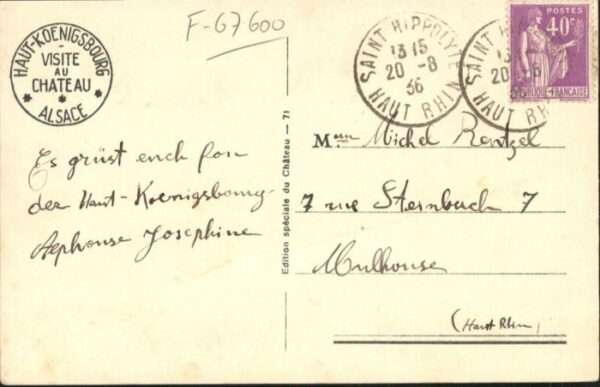 F-67600
HAUT-KOENIGSBOURG
- VISITE
AU
CHATEAU
* * *
ALSACE
SAINT HIPPOLYTE
13 15
20 - 8
36
HAUT RHIN
SAINT H
20 - 8
36
HAUT RH
POSTES
40c
RÉPUBLIQUE FRANÇAISE
Es grüst euch fon
der Haut-Koenigsbourg
Alphonse Josephine
Edition spéciale du Château — 71
Michel Rentzel
7 rue Sternbuch 7
Mulhouse
(Haut Rhin)